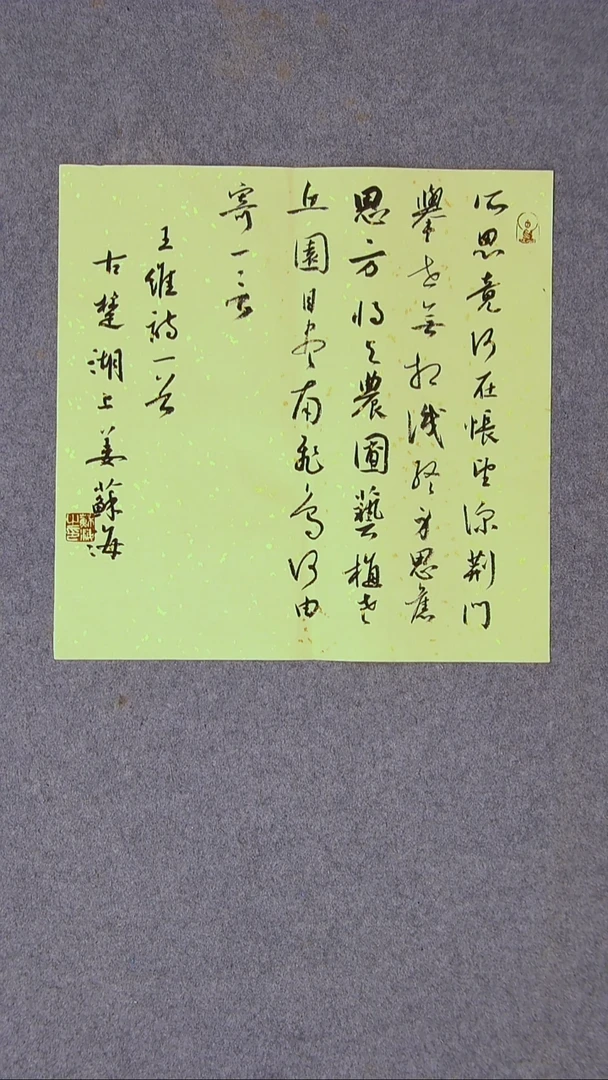 所思竟何在悵望深荆门
舉世無相識終身思舊
恩方将与農圃藝植老
丘園目盡南飛鳥何由
寄一言
王維詩一首
古楚湖上姜蘇海